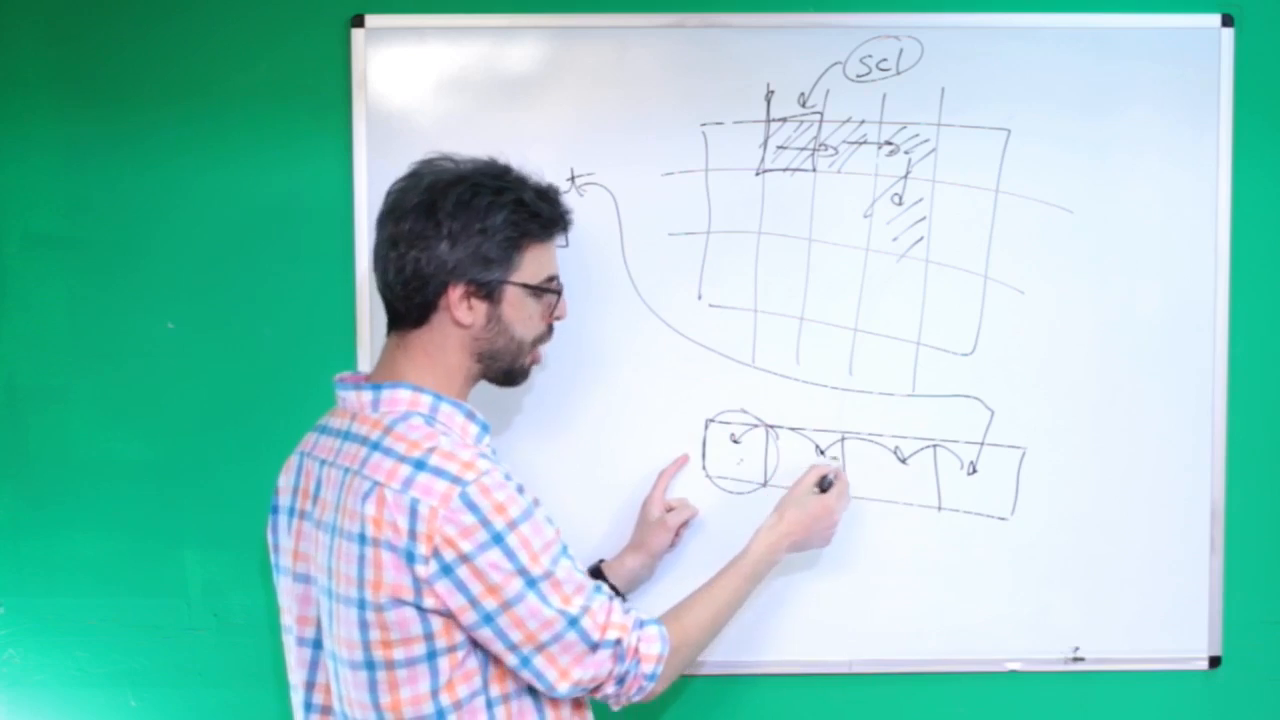 scl
t